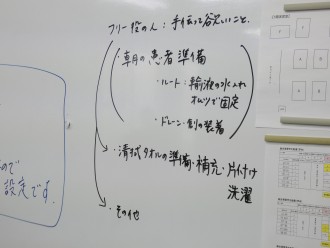 フリー役の人：手伝って欲しいこと。
朝の患者準備
・ルート：輸液の水入れ
オムツで固定
・ドレーン・創の装着
・清拭タオルの準備・補充・片付け
洗濯
・その他
ので
設定です。